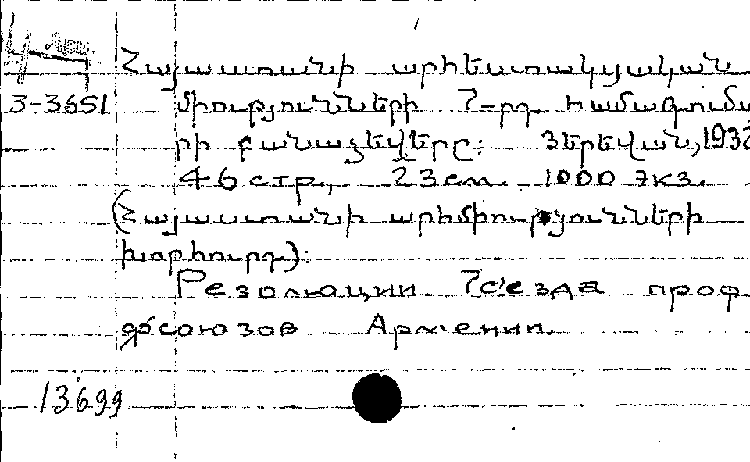 Հայաստանի արհեստակցական
3-3651 միությունների 7-րդ համագումա
րի բանաձեվերը: Յերեվան, 1932
46 стр., 23 см. 1000 экз.
(Հայաստանի արհմիությունների
խորհուրդ):
Резолюции 7 съезда проф
союзов Армении.
13699